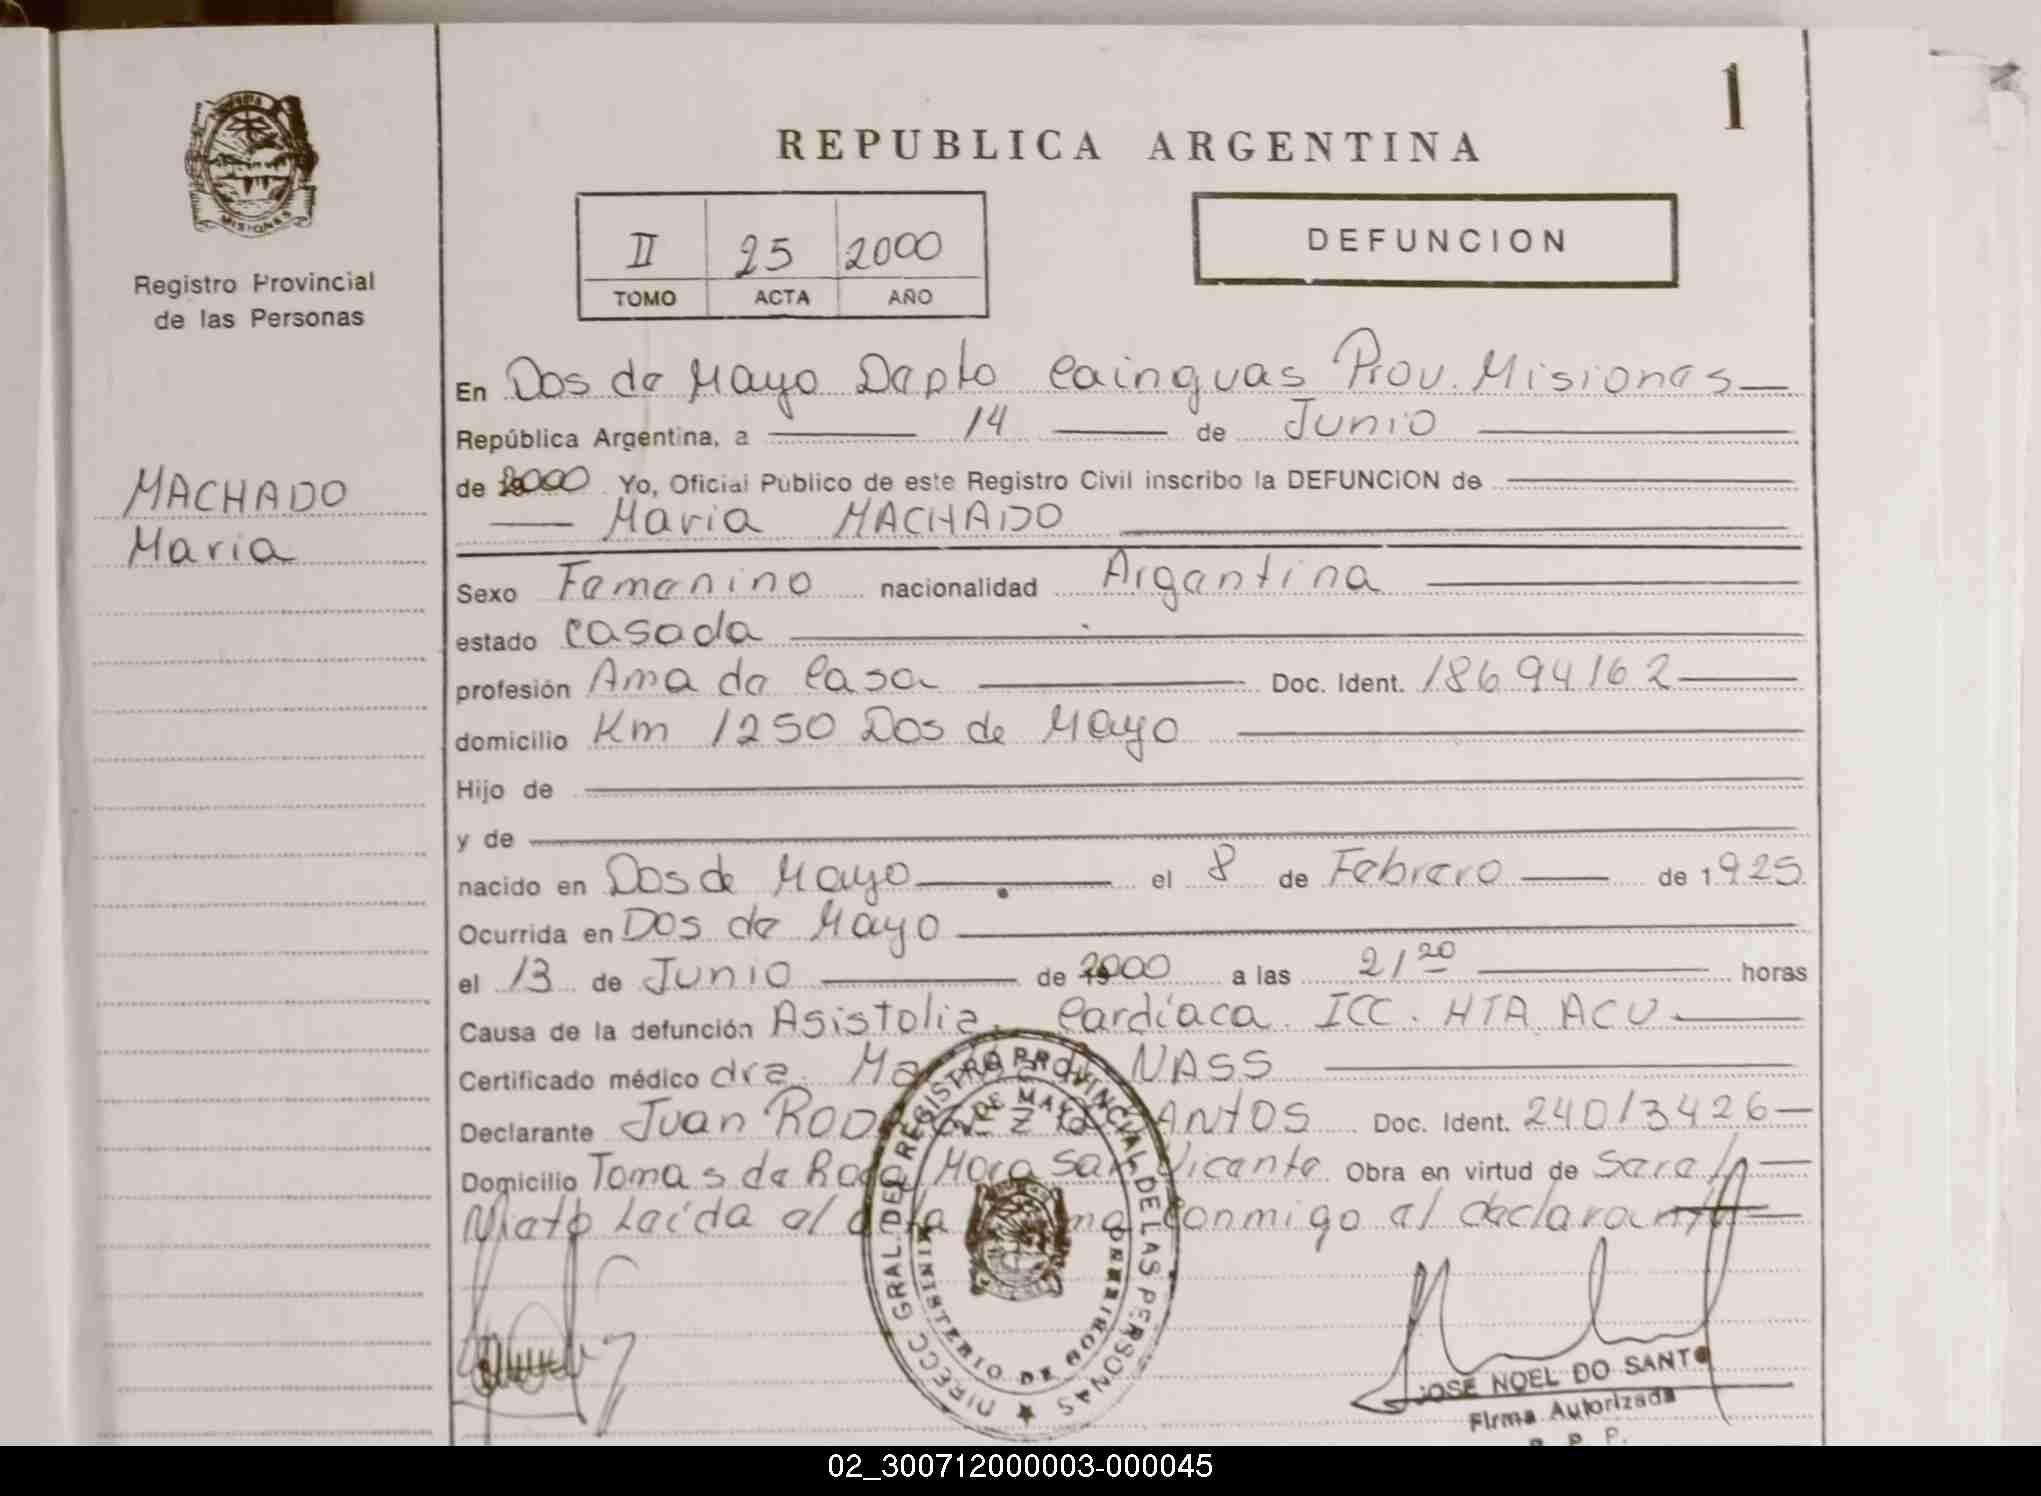 1
REPUBLICA ARGENTINA
II 25 2000
TOMO ACTA AÑO
DEFUNCION
MISIONES
Registro Provincial
de las Personas
MACHADO
Maria
En Dos de Mayo Dapto Cainguas Prov. Misiones
República Argentina, a 14 de Junio
de 2000 Yo, Oficial Público de este Registro Civil inscribo la DEFUNCION de
Maria MACHADO
Sexo Femenino nacionalidad Argentina
estado casada
profesión Ama de Casa Doc. Ident. 18694162
domicilio Km 1250 Dos de Mayo
Hijo de
y de
nacido en Dos de Mayo el 8 de Febrero de 1925
Ocurrida en Dos de Mayo
el 13 de Junio de 2000 a las 21 20 horas
Causa de la defunción Asistolia Cardíaca. ICC. HTA ACV
Certificado médico dra. NASS
Declarante Juan Doc. Ident. 24013426
Domicilio Tomas de Roca Mora San Vicente Obra en virtud de ser el
Nieto Leída al conmigo el declarante
DIRECC GRAL DEL REGISTRO PROVINCIAL DE LAS PERSONAS
2 DE MAYO
MINISTERIO DE GOBIERNO
JOSE NOEL DO SANTO
Firma Autorizada
R. P. P.
02_300712000003-000045